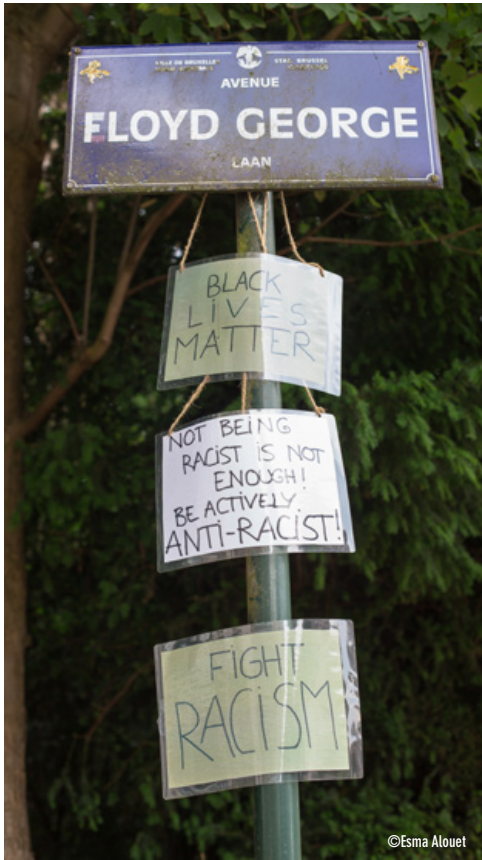 VILLE DE BRUXELLES
STAD BRUSSEL
AVENUE
FLOYD GEORGE
LAAN
BLACK
LIVES
MATTER
NOT BEING
RACIST IS NOT
ENOUGH!
BE ACTIVELY
ANTI-RACIST!
FIGHT
RACISM
©Esma Alouet